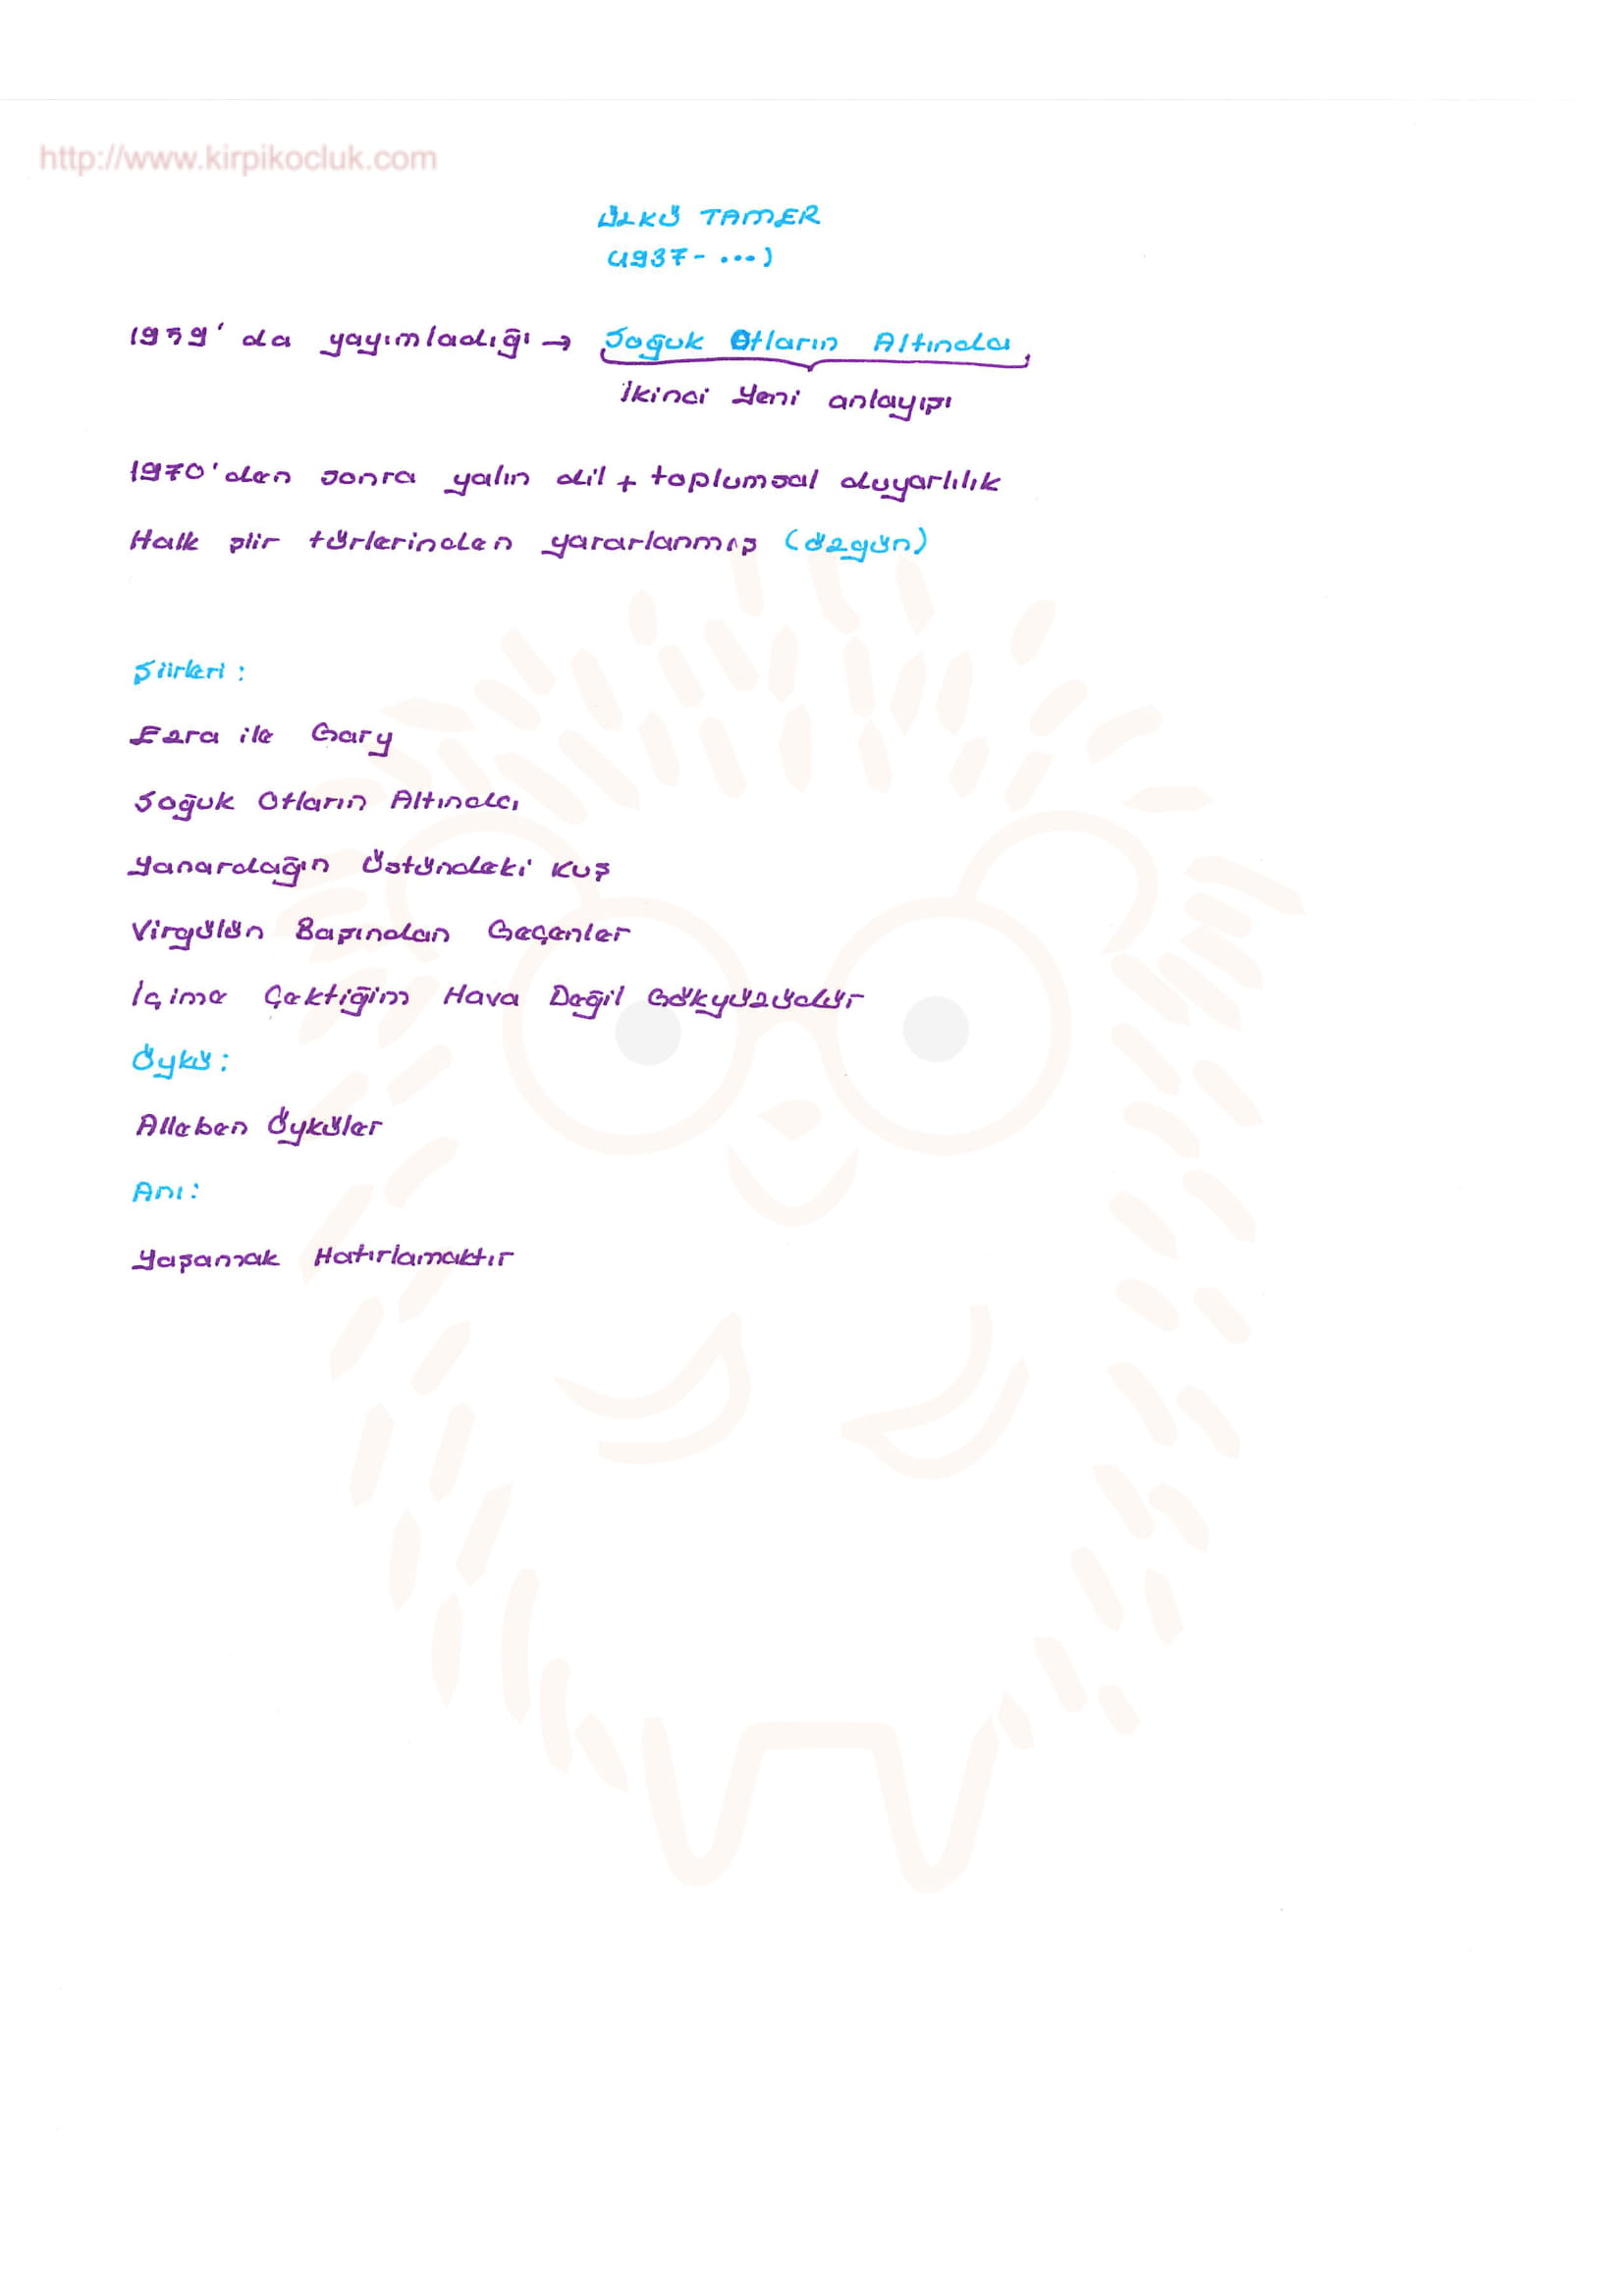 http://www.kirpikocluk.com
ÜLKÜ TAMER
(1937- ...)
1959'da yayımladığı → Soğuk Otların Altında
İkinci Yeni anlayışı
1970'den sonra yalın dil + toplumsal duyarlılık
Halk şiir türlerinden yararlanmış (özgün)
Şiirleri:
Ezra ile Gary
Soğuk Otların Altında
Yanardağın Üstündeki Kuş
Virgülün Başından Geçenler
İçime Çektiğim Hava Değil Gökyüzüdür
Öykü:
Alleben Öyküler
Anı:
Yaşamak Hatırlamaktır